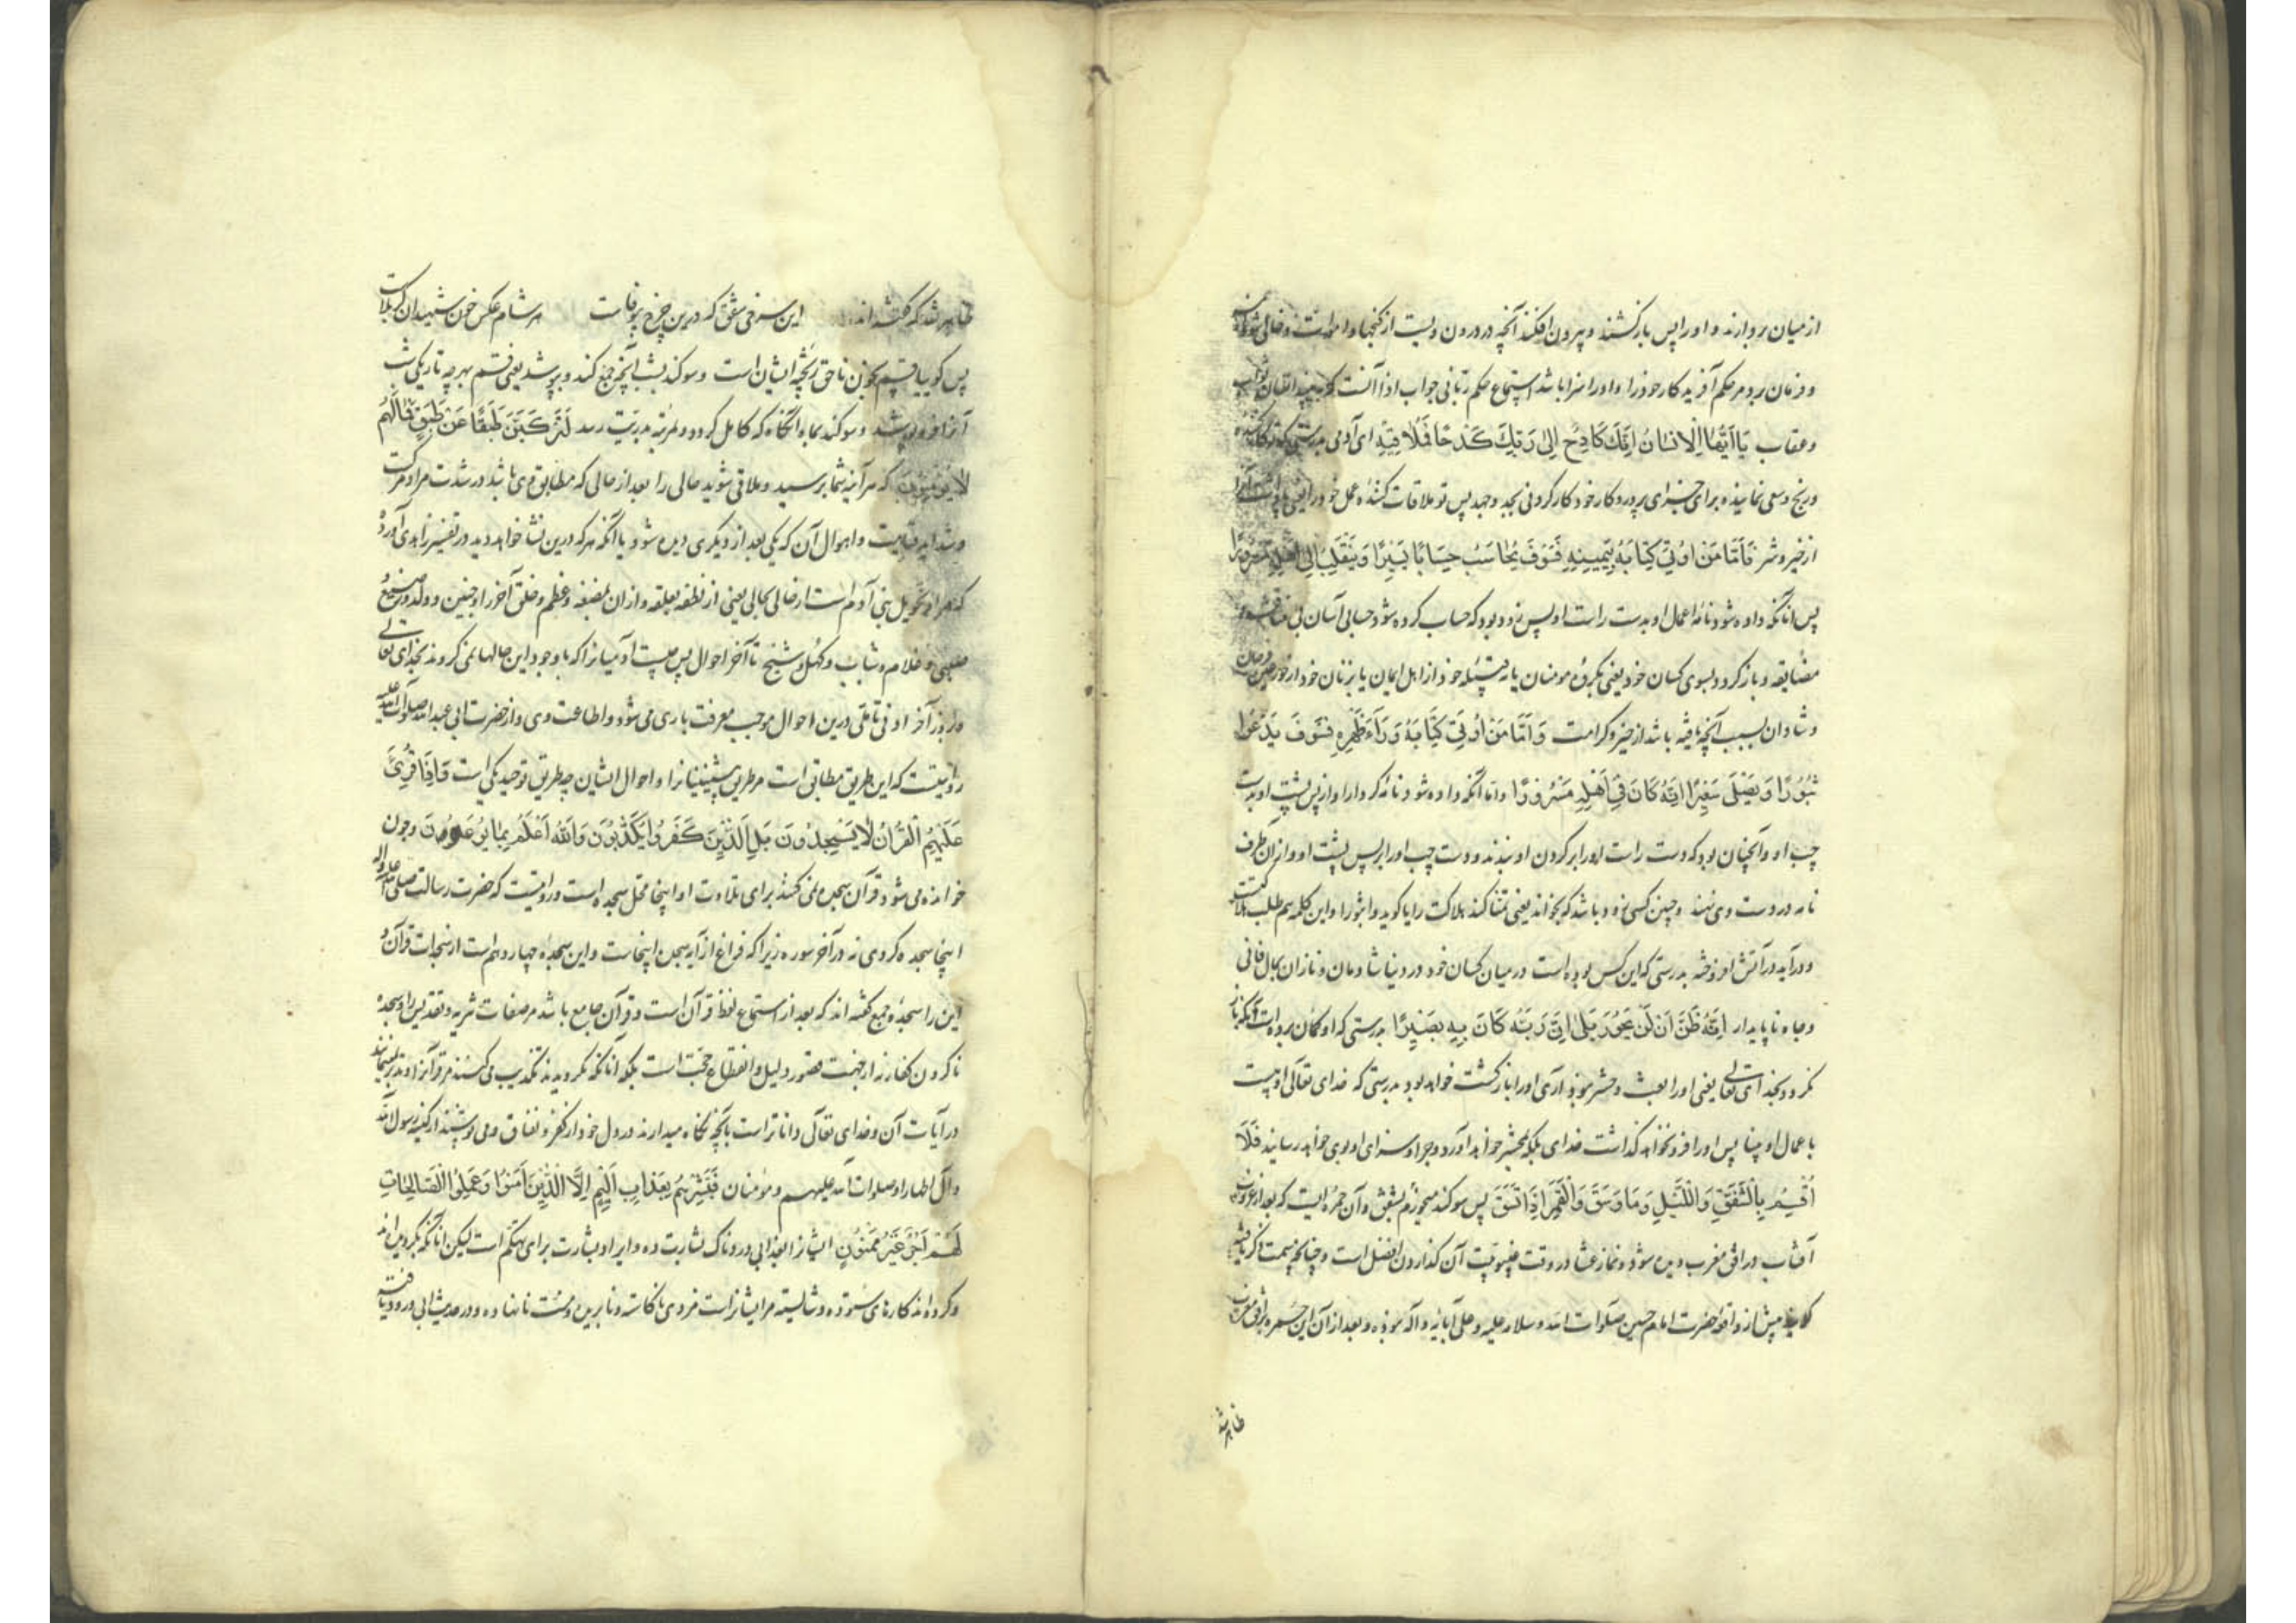 از میان بردارند و او را پس بازکشند و بیرون افکند آنچه در درون ویست از کنجها و اموات و خالی شود
و فرمان برد مر حکم آفریدکار خود را و او را سزا باشد استماع حکم ربانی جواب اذا آنست که ببیند انسان ثواب
و عقاب یَا اَیُّهَا الْاِنْسَانُ اِنَّكَ كَادِحٌ اِلٰی رَبِّكَ كَدْحًا فَمُلَاقِیْهِ ای آدمی بدرستی که تو کارکننده
و رنج و سعی نماینده برای جزای پروردکار خود کار کردنی بجد و جهد پس تو ملاقات کننده عمل خود را
از خیر و شر فَاَمَّا مَنْ اُوْتِیَ كِتَابَهُ بِیَمِیْنِهِ فَسَوْفَ یُحَاسَبُ حِسَابًا یَسِیْرًا وَیَنْقَلِبُ اِلٰی اَهْلِهِ مَسْرُوْرًا
پس اما آنکه داده شود نامه اعمال او بدست راست او پس زود بود که حساب کرده شود حسابی آسان بی مناقشه و
مضایقه و بازکردد بسوی کسان خود یعنی بکروه مومنان یا به قبیله خود از اهل ایمان یا بزنان خود از حور عین فرحان
و شادان بسبب آنچه یافته باشد از خیر و کرامت وَاَمَّا مَنْ اُوْتِیَ كِتَابَهُ وَرَآءَ ظَهْرِهِ فَسَوْفَ یَدْعُوْا
ثُبُوْرًا وَیَصْلٰی سَعِیْرًا اِنَّهُ كَانَ فِیْ اَهْلِهِ مَسْرُوْرًا و اما آنکه داده شود نامه کردار او از پس پشت او بدست
چپ او و آنچنان بود که دست راست او را بر کردن او بندند و دست چپ او را بر پس پشت او و از ان طرف
نامه در دست وی نهند و چنین کسی زود باشد که بخواند یعنی تمنا کند هلاکت را یا کوید واثبورا و این کلمه هم طلب هلاکت
و درآید در آتش افروخته بدرستی که این کس بوده است در میان کسان خود در دنیا شادمان و نازان بمال فانی
و جاه ناپایدار اِنَّهُ ظَنَّ اَنْ لَنْ یَحُوْرَ بَلٰی اِنَّ رَبَّهُ كَانَ بِهِ بَصِیْرًا بدرستی که او کمان برده است آنکه باز
نکردد بخدای تعالی یعنی او را بعث و حشر نبود آری او را بازکشت خواهد بود بدرستی که خدای تعالی او بیناست
باعمال او بینا پس او را فرو نخواهد گذاشت خدای بلکه بمحشر خواهد آورد و جزا و سزای او بوی خواهد رسانید فَلَآ
اُقْسِمُ بِالشَّفَقِ وَاللَّیْلِ وَمَا وَسَقَ وَالْقَمَرِ اِذَا اتَّسَقَ پس سوکند میخورم بشفق و آن حمره ایست که بعد از غروب
آفتاب در افق مغرب دیده شود و نماز عشا در وقت غیبوبیت آن کذاردن افضل است و چنانچه سمت ذکر یافته
کلاغی پیش از واقعه حضرت امام حسین صلوات الله و سلامه علیه و علی آبائه و آله نبوده و بعد از آن این حمره بر افق مغرب
ظاهر شد
ظاهر شد که کفته‌اند این سرخی شفق که درین چرخ بیوفاست هر شام عکس خون شهیدان کربلاست
پس کوییا قسم بخون ناحق ریخته ایشان است و سوکند بشب آنچه جمع کند و بپوشد یعنی قسم بهرچه تاریکی شب
آنرا فرو پوشد و سوکند بماه آنکاه که کامل کردد و بمرتبه بدریت رسد لَتَرْكَبُنَّ طَبَقًا عَنْ طَبَقٍ فَمَا لَهُمْ
لَا یُؤْمِنُوْنَ که هرآینه شما برسید و ملاقی شوید حالی را بعد از حالی که مطابق وی باشد در شدت مراد مرکست
و شداید قیامت و اهوال آن که یکی بعد از دیکری دیده شود یا آنکه هر که درین نشا خواهد دید در تفسیر زاهدی آورده
که مراد تحویل بنی آدم است از حالی بحالی یعنی از نطفه بعلقه و از ان بمضغه و عظم و خلق آخر از جنین و ولد و رضیع
صبی و غلام و شاب و کهل و شیخ تا آخر احوال پس چیست آدمیانرا که با وجود این حالها نمی کروند بخدای تعالی
و بروز آخر ادنی تاملی درین احوال موجب معرفت باری می شود و اطاعت وی و از حضرت ابی عبدالله صلوات الله علیه
روایتست که این طریق مطابق است مر طریق پیشینیانرا و احوال ایشان چه طریق توحید یکی است وَاِذَا قُرِئَ
عَلَیْهِمُ الْقُرْاٰنُ لَا یَسْجُدُوْنَ بَلِ الَّذِیْنَ كَفَرُوْا یُكَذِّبُوْنَ وَاللّٰهُ اَعْلَمُ بِمَا یُوْعُوْنَ و چون
خوانده می شود قرآن سجده نمی کنند برای تلاوت او اینجا محل سجده است و روایتست که حضرت رسالت صلی الله علیه و آله
اینجا سجده کردی نه در آخر سوره زیرا که فراغ از آیه سجده اینجاست و این سجده چهاردهم است از سجدات قرآن و
این را سجده جمع کفته‌اند که بعد از استماع لفظ قرآن است و قرآن جامع باشد مر صفات تنزیه و تقدیس را و سجده
ناکردن کفار نه از جهت قصور دلیل و انقطاع حجت است بلکه آنانکه نکرویدند تکذیب می کنند مر قرآنرا و تدبر نمی نمایند
در آیات آن و خدای تعالی داناتر است بآنچه نکاه میدارند در دل خود از کفر و نفاق و می پوشند از کینه رسول الله
و آل اطهار او صلوات الله علیهم و مؤمنان فَبَشِّرْهُمْ بِعَذَابٍ اَلِیْمٍ اِلَّا الَّذِیْنَ اٰمَنُوْا وَعَمِلُوا الصَّالِحَاتِ
لَهُمْ اَجْرٌ غَیْرُ مَمْنُوْنٍ ایشانرا بعذابی دردناک بشارت ده و ایراد بشارت برای تهکم است لیکن آنانکه بکرویده‌اند
و کرده‌اند کارهای ستوده و شایسته مر ایشانراست مزدی ناکاسته و نابریده و منت نانهاده و در حدیث ابی درود یافته